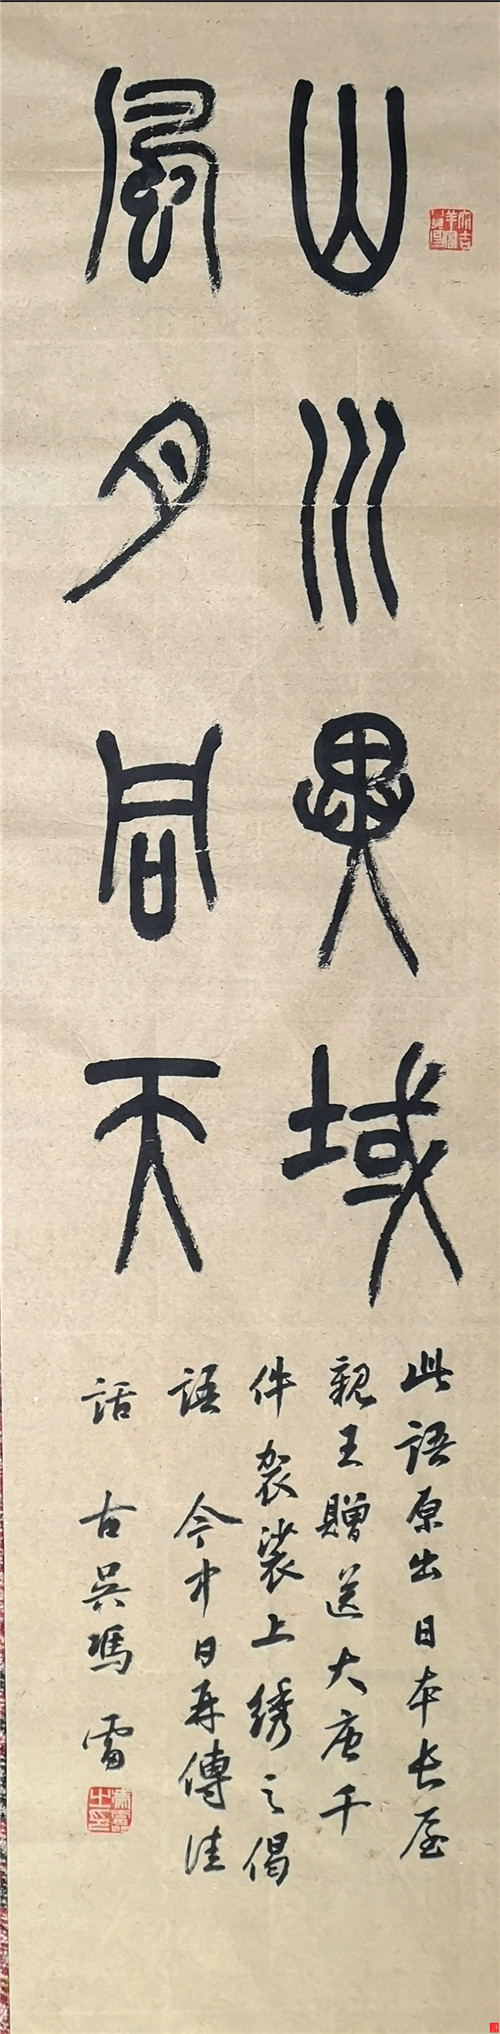 山川異域
風月同天
此語原出日本长屋
親王贈送大唐千
件袈裟上绣之偈
語 今中日再傳佳
話 古吳馮雷
馮雷之印